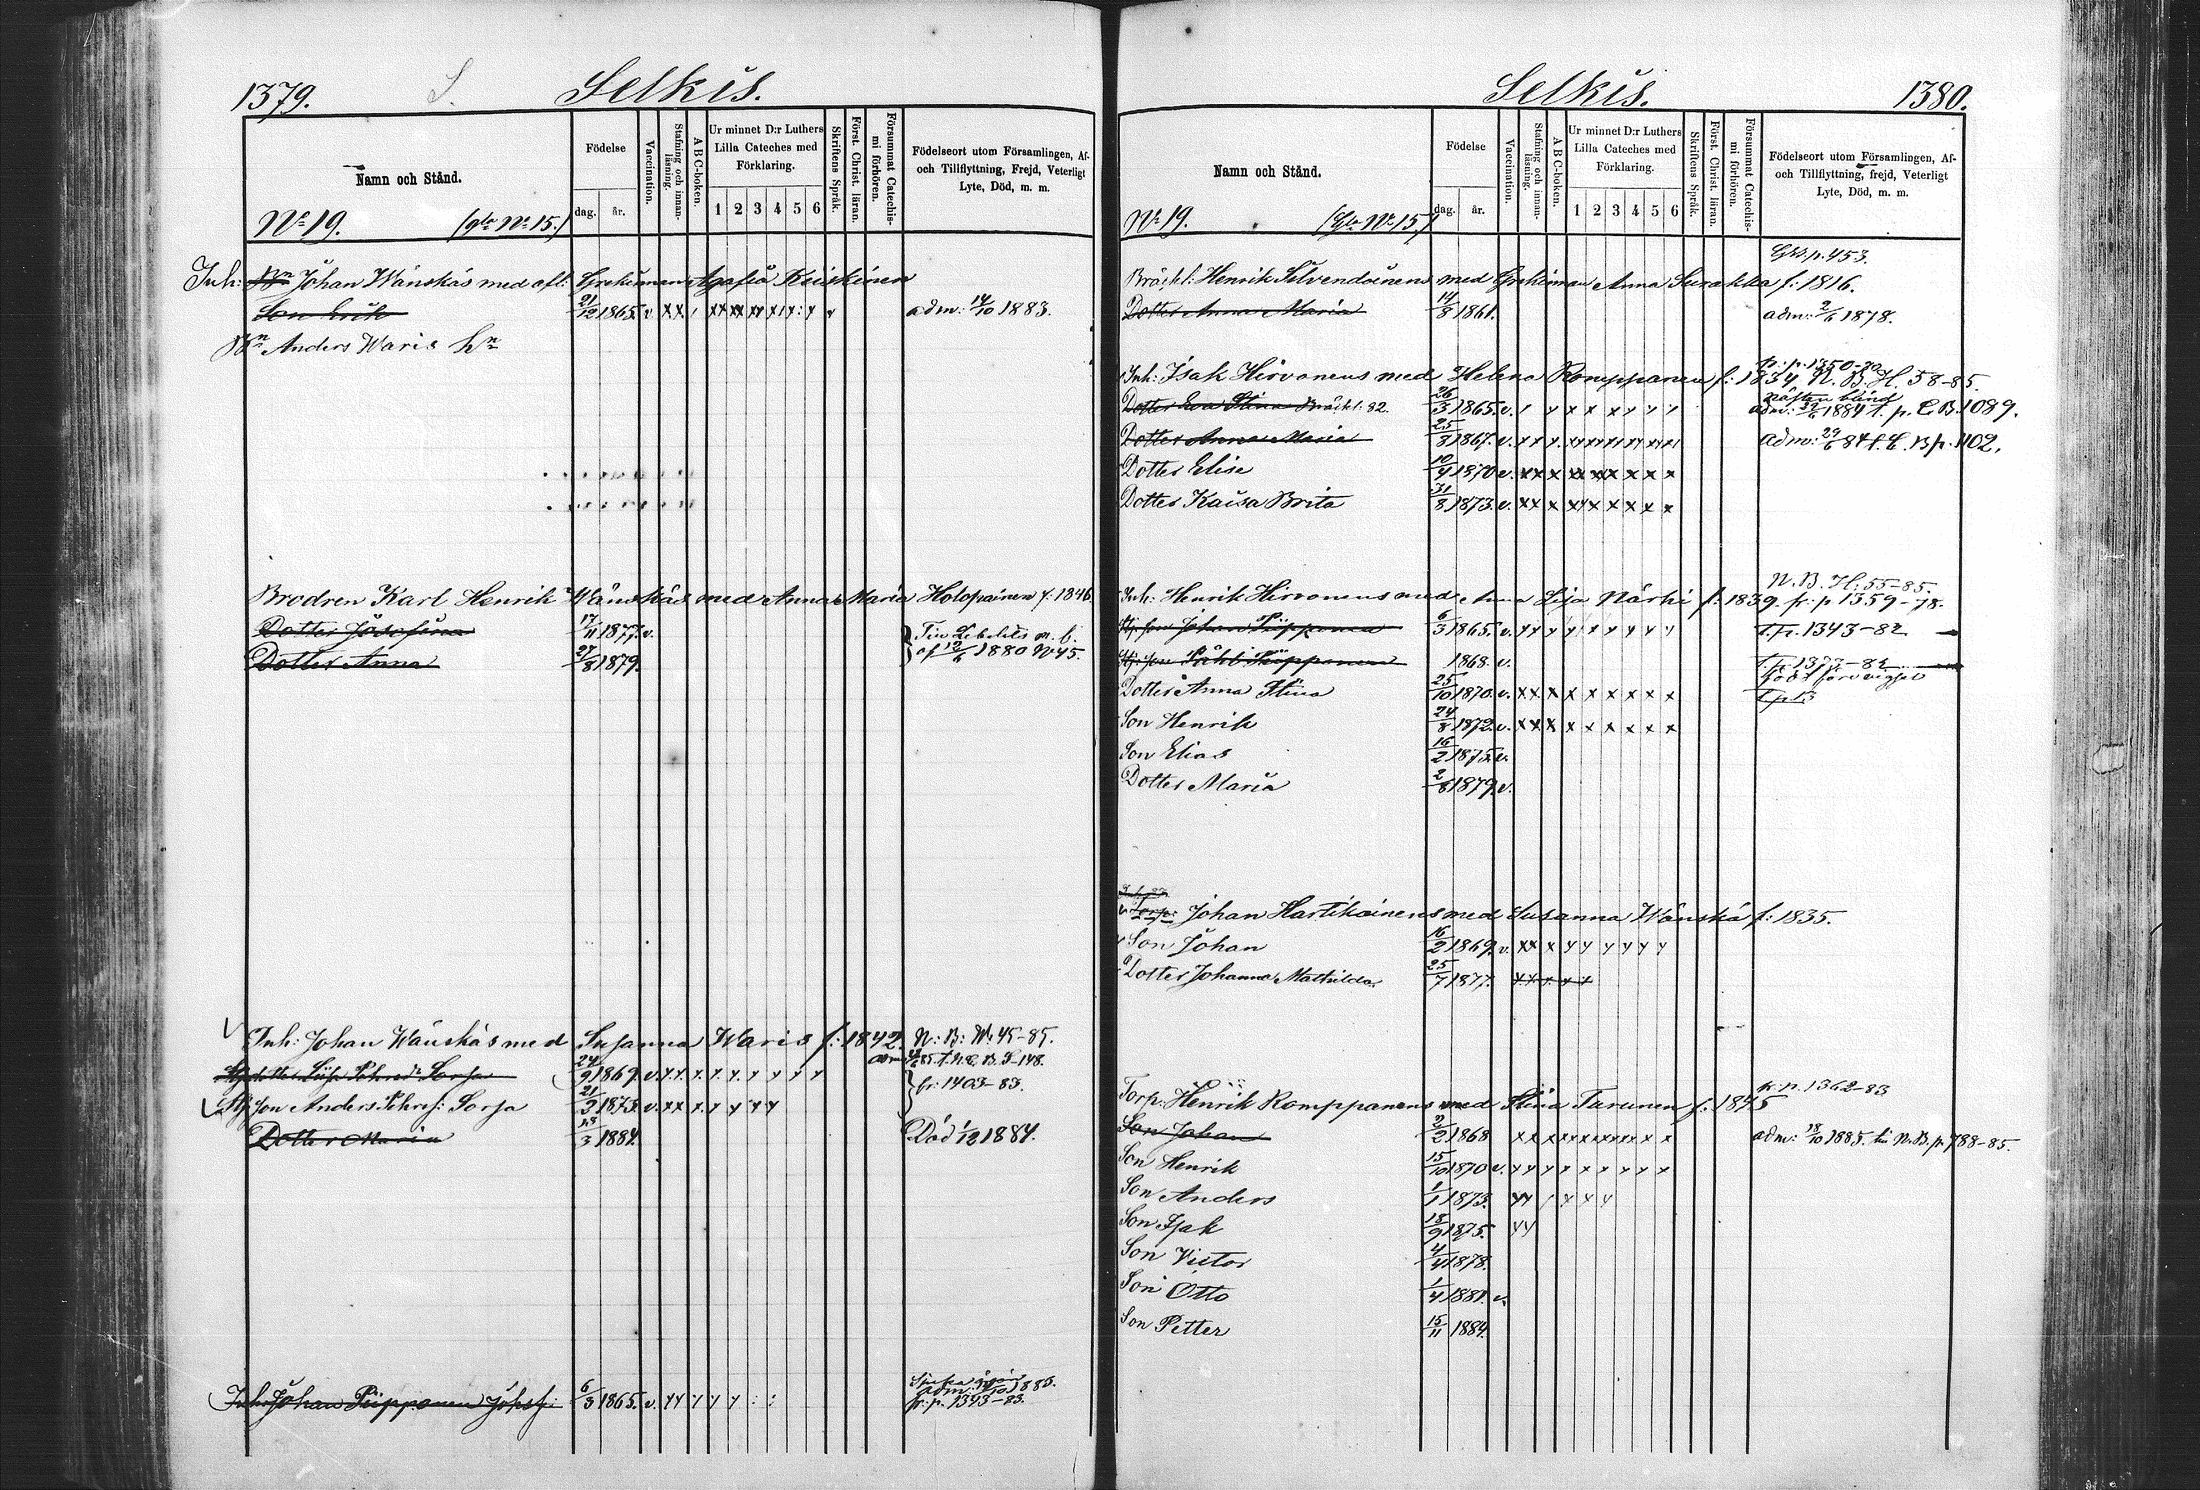 1379. S. Selkis.
Namn och Stånd.
Födelse
dag. år.
Vaccination.
Stafning och innanläsning.
A B C-boken.
Ur minnet D:r Luthers Lilla Cateches med Förklaring.
1 2 3 4 5 6
Skriftens Språk.
Först. Christ. läran.
Försummat Catechismi förhören.
Födelseort utom Församlingen, Af- och Tillflyttning, Frejd, Veterligt Lyte, Död, m. m.
No 19. (gla No 15.)
Inh: Bn Johan Wänskäs med afl: Grekinnan Agafia Kuiskinen
Son Erik 21/12 1865. v. adm: 14/10 1883.
Bn Anders Waris hn
Brodren Karl Henrik Wänskäs med Anna Maria Holopainen f. 1846.
Dotter Josefina 17/11 1877. v.
Dotter Anna 27/8 1879. af 12/6 1880 No 45.
Inh: Johan Wänskäs med Susanna Waris f: 1842. N: B: W. 45-85.
24/9 1867. v. fr: 1403-83.
Stf son Anders Sorsa 21/3 1873. v.
Dotter Maria 13/3 1884. Död 1/12 1884.
Inh. Johan Piipponen Johsf: 6/3 1865. v. fr. p. 1343-83.
Selkis. 1380.
Namn och Stånd.
Födelse
dag. år.
Vaccination.
Stafning och innanläsning.
A B C-boken.
Ur minnet D:r Luthers Lilla Cateches med Förklaring.
1 2 3 4 5 6
Skriftens Språk.
Först. Christ. läran.
Försummat Catechismi förhören.
Födelseort utom Församlingen, Af- och Tillflyttning, frejd, Veterligt Lyte, Död, m. m.
No 19. (Gla No 15.)
p. 453.
Bräckl: Henrik Silvendoinens med Grekinnan Anna Surakka f: 1816.
Dotter Anna Maria 14/8 1861. adm: 2/6 1878.
Inh: Isak Hirvonens med Helena Romppanen f: 1834. N. B. H. 58-85.
nästan blind
Dotter Eva Stina Bräckl: 82. 26/3 1865. v. 1884 t. p. C. B. 1089.
Dotter Anna Maria 25/8 1867. v. adm: 29/6 84 t. C. B. p. 1102.
Dotter Elise 10/4 1870. v.
Dotter Kaisa Brita 31/8 1873. v.
N. B. H: 55-85.
Inh: Henrik Hirvonens med Anna Lisa Närhi f: 1839. fr. p 1359-78.
Stf son Johan Piipponen 6/3 1865. v. T. p. 1343-82
Stf: son Piipponen 1868. v. T. p. 1377-82
Dotter Anna Stina 25/10 1870. v.
Son Henrik 24/8 1872. v.
Son Elias 16/2 1875. v.
Dotter Maria 2/8 1879. v.
Torp: Johan Hartikainens med Susanna Wänskä f: 1835.
Son Johan 16/2 1869. v.
Dotter Johanna Mathilda 25/7 1877.
fr. p. 1362-83
Torp: Henrik Romppanens med Stina Turunen f: 1845
Son Johan 2/2 1868 adm: 18/10 1885. N. B. p. 788-85.
Son Henrik 15/10 1870 v.
Son Anders 1/1 1873.
Son Isak 18/9 1875.
Son Victor 4/4 1878.
Son Otto 1/4 1881. v.
Son Petter 15/11 1884.